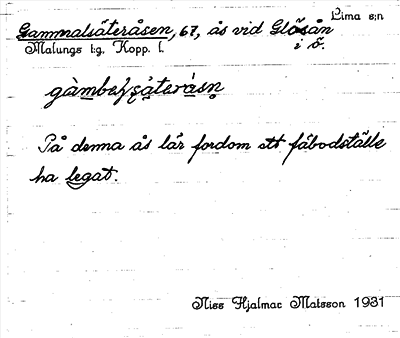 Lima s:n
Gammalsäteråsen, 67, ås vid Glösån
i ö.
Malungs t:g. Kopp. l.
På denna ås lär fordom ett fäbodställe
ha legat.
Niss Hjalmar Matsson 1931